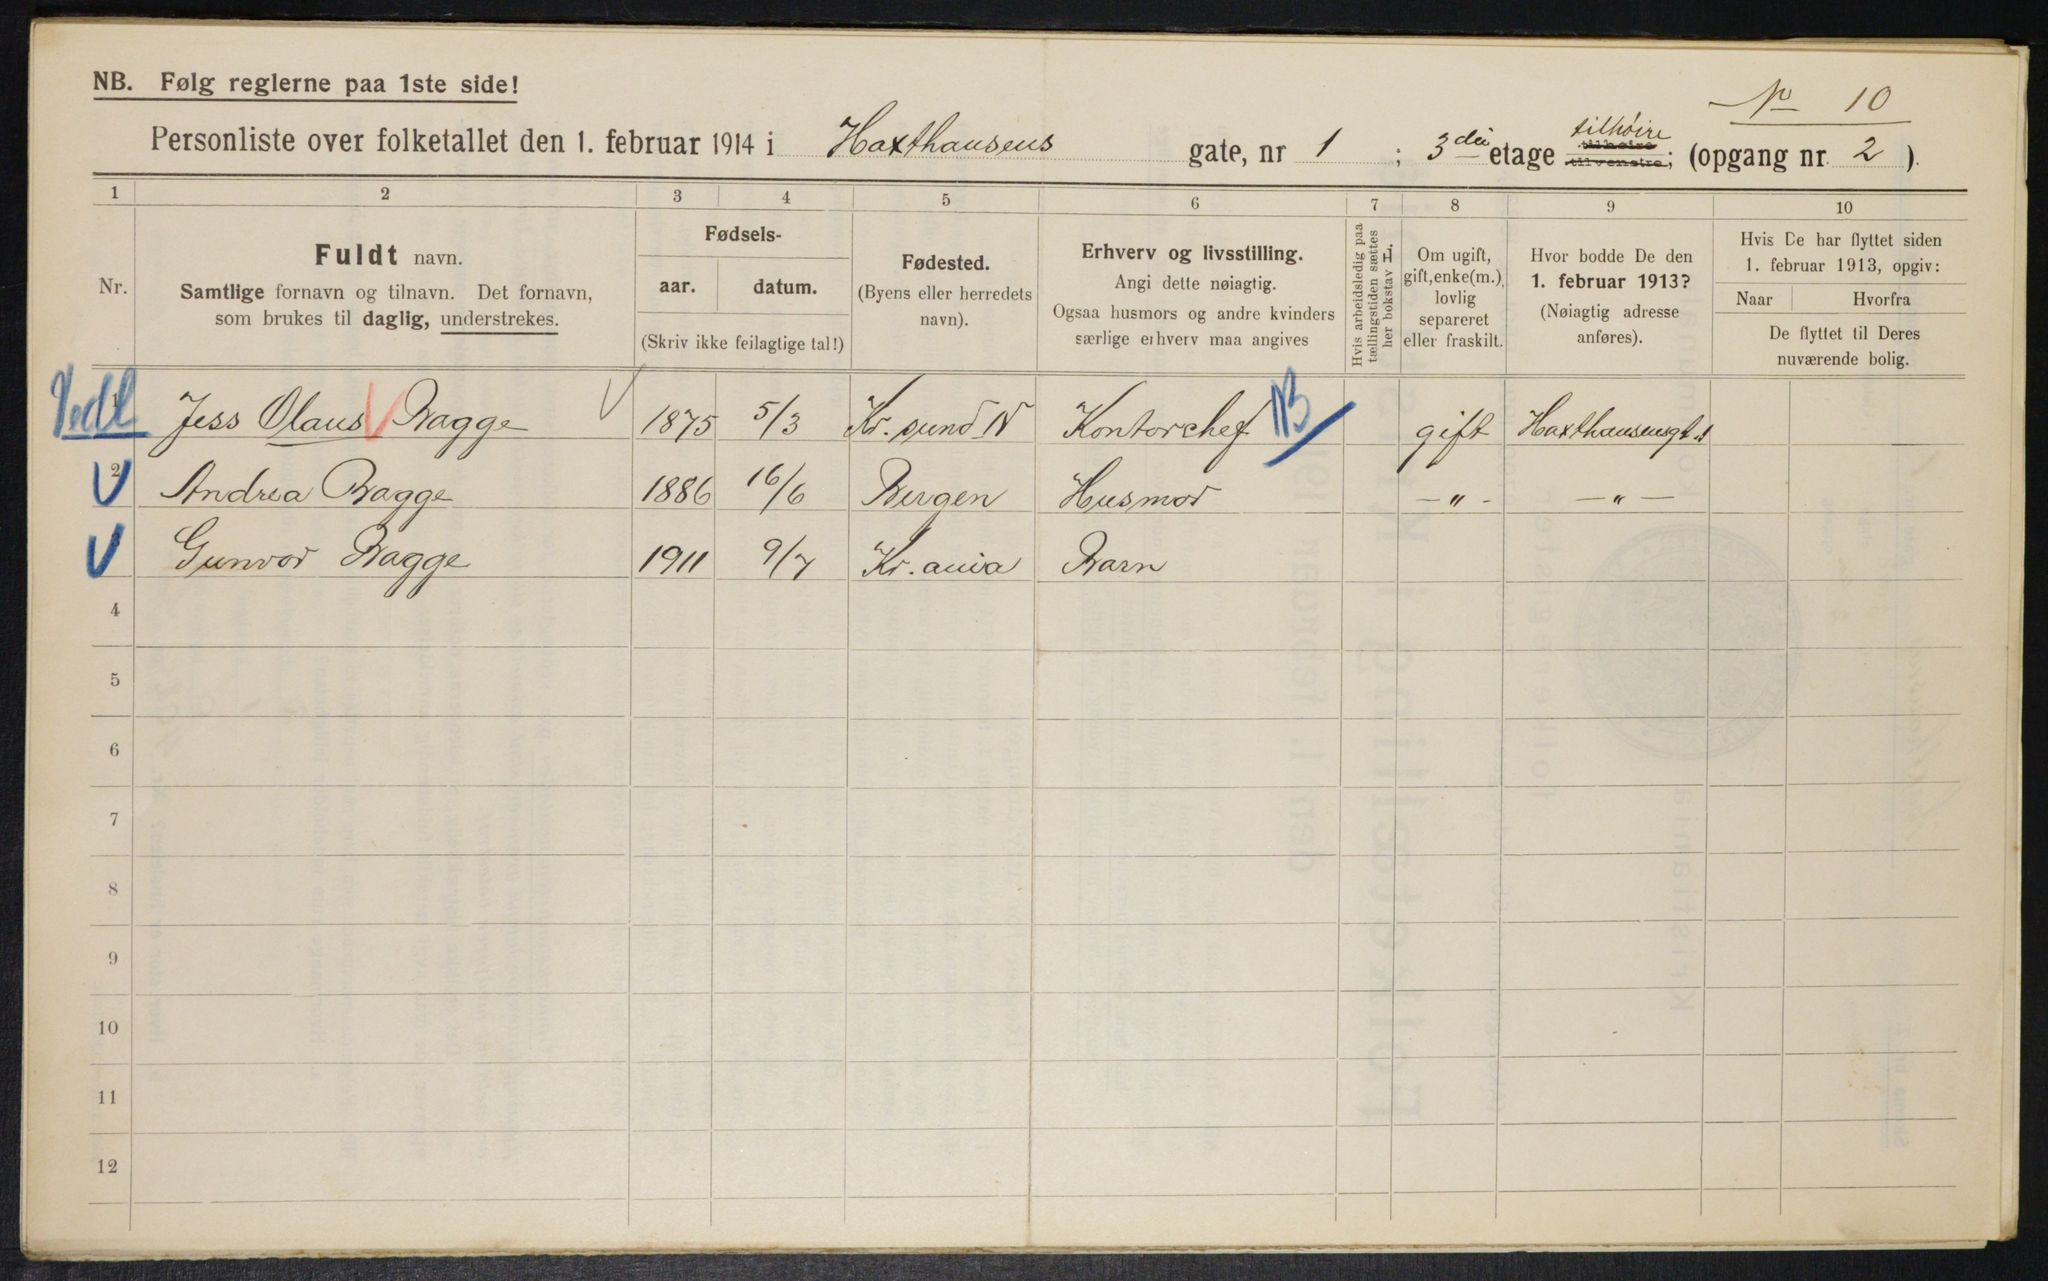 NB. Følg reglerne paa 1ste side!
No 10
Personliste over folketallet den 1. februar 1914 i Haxthausens gate, nr 1 ; 3die etage tilhøire tilhøire tilvenstre; (opgang nr. 2 ).
1 2 3 4 5 6 7 8 9 10
Nr.
Fuldt navn.
Samtlige fornavn og tilnavn. Det fornavn,
som brukes til daglig, understrekes.
Fødsels-
aar. datum.
(Skriv ikke feilagtige tal!)
Fødested.
(Byens eller herredets
navn).
Erhverv og livsstilling.
Angi dette nøiagtig.
Ogsaa husmors og andre kvinders
særlige erhverv maa angives
Hvis arbeidsledig paa
tællingstiden sættes
her bokstav L.
Om ugift,
gift, enke(m.),
lovlig
separeret
eller fraskilt.
Hvor bodde De den
1. februar 1913?
(Nøiagtig adresse
anføres).
Hvis De har flyttet siden
1. februar 1913, opgiv:
Naar Hvorfra
De flyttet til Deres
nuværende bolig.
Vedl 1 Jess Olaus Bagge 1875 5/3 Kr. sund N Kontorchef NB gift Haxthausensgt. 1
2 Andrea Bagge 1886 16/6 Bergen Husmor — „ — — „ —
3 Gunvor Bagge 1911 9/7 Kr. ania Barn
4
5
6
7
8
9
10
11
12